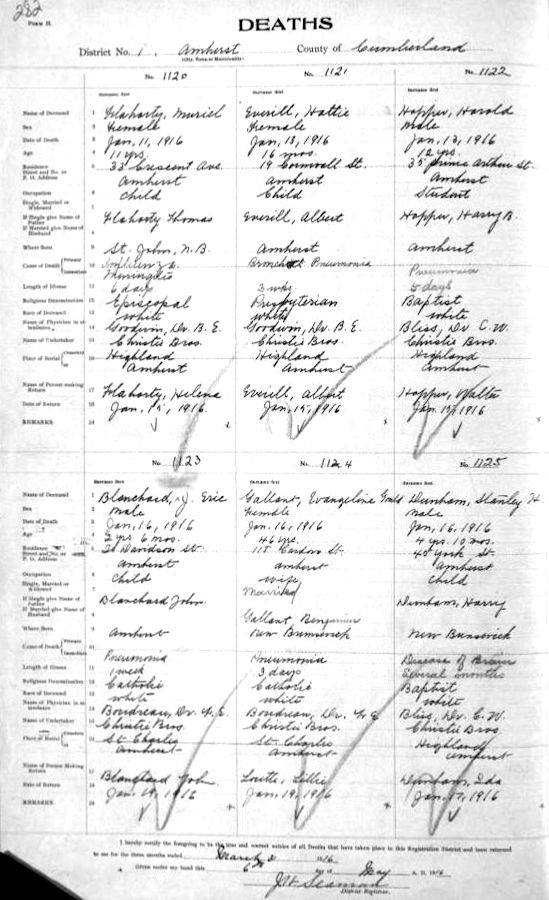 282
FORM H.
DEATHS
District No. 1, Amherst County of Cumberland
(City, Town or Municipality)
No. 1120 No. 1121 No. 1122
Surname first Surname first Surname first
Name of Deceased 1 Flaharty, Muriel Everill, Hattie Hopper, Harold
Sex 2 Female Female Male
Date of Death 3 Jan. 11, 1916 Jan, 13, 1916 Jan. 13, 1916
Age 4 11 yrs. 16 mos. 12 yrs.
Residence 5 33 Crescent Ave. 19 Cornwall St. 35 Prince Arthur St.
Street and No. or P. O. Address Amherst Amherst Amherst
Occupation 6 Child Child Student
Single, Married or Widowed 7
If Single give Name of Father 8 Flaharty Thomas Everill, Albert Hopper, Harry B.
If Married give Name of Husband
Where Born 9 St. John, N.B. Amherst Amherst
Cause of Death Primary 10 Influenza Bronchial Pneumonia
Immediate Meningitis Pneumonia
Length of Illness 11 6 days 3 wks 5 days
Religious Denomination 12 Episcopal Presbyterian Baptist
Race of Deceased 13 white white white
Name of Physician in attendance 14 Goodwin, Dr. B. E. Goodwin, Dr. B. E. Bliss, Dr. C. W.
Name of Undertaker 15 Christie Bros. Christie Bros. Christie Bros.
Place of Burial Cemetery 16 Highland Highland Highland
Amherst Amherst Amherst
Name of Person making Return 17 Flaharty, Helena Everill, Albert Hopper, Walter
Date of Return 18 Jan. 15, 1916. Jan. 15, 1916 Jan. 1916
REMARKS 19
No. 1123 No. 1124 No. 1125
Surname first Surname first Surname first
Name of Deceased 1 Blanchard, J. Eric Gallant, Evangeline Gould Dunham, Stanley H
Sex 2 Male Female Male
Date of Death 3 Jan, 16, 1916 Jan. 16, 1916 Jan, 16, 1916
Age 4 2 yrs 6 mos. 46 yrs. 4 yrs. 10 mos.
Residence 5 Davidson St. 115 St. 40 York St.
Street and No. or P. O. Address Amherst Amherst Amherst
Occupation 6 Child wife Child
Single, Married or Widowed 7 Married
If Single give Name of Father 8 Blanchard John. Dunham, Harry
If Married give Name of Husband Gallant, Benjamin
Where Born 9 Amherst New Brunswick New Brunswick
Cause of Death Primary 10
Immediate Pneumonia Pneumonia Disease of Brain
Length of Illness 11 1 week 3 days Several months
Religious Denomination 12 Catholic Catholic Baptist
Race of Deceased 13 white white white
Name of Physician in attendance 14 Boudreau, Dr. Boudreau, Dr. Bliss, Dr. C. W.
Name of Undertaker 15 Christie Bros. Christie Bros. Christie Bros.
Place of Burial Cemetery 16 St. Charles St. Charles Highland
Amherst Amherst Amherst
Name of Person Making Return 17 Blanchard John. Lillie Dunham, Ida
Date of Return 18 Jan. 19, 1916 Jan. 19, 1916 Jan. 17, 1916
REMARKS 19
I hereby certify the foregoing to be the true and correct entries of all Deaths that have taken place in this Registration District and been returned
to me for the three months ended March 31 1916
Given under my hand this 6th day of May A. D. 1916
Seaman
District Registrar.